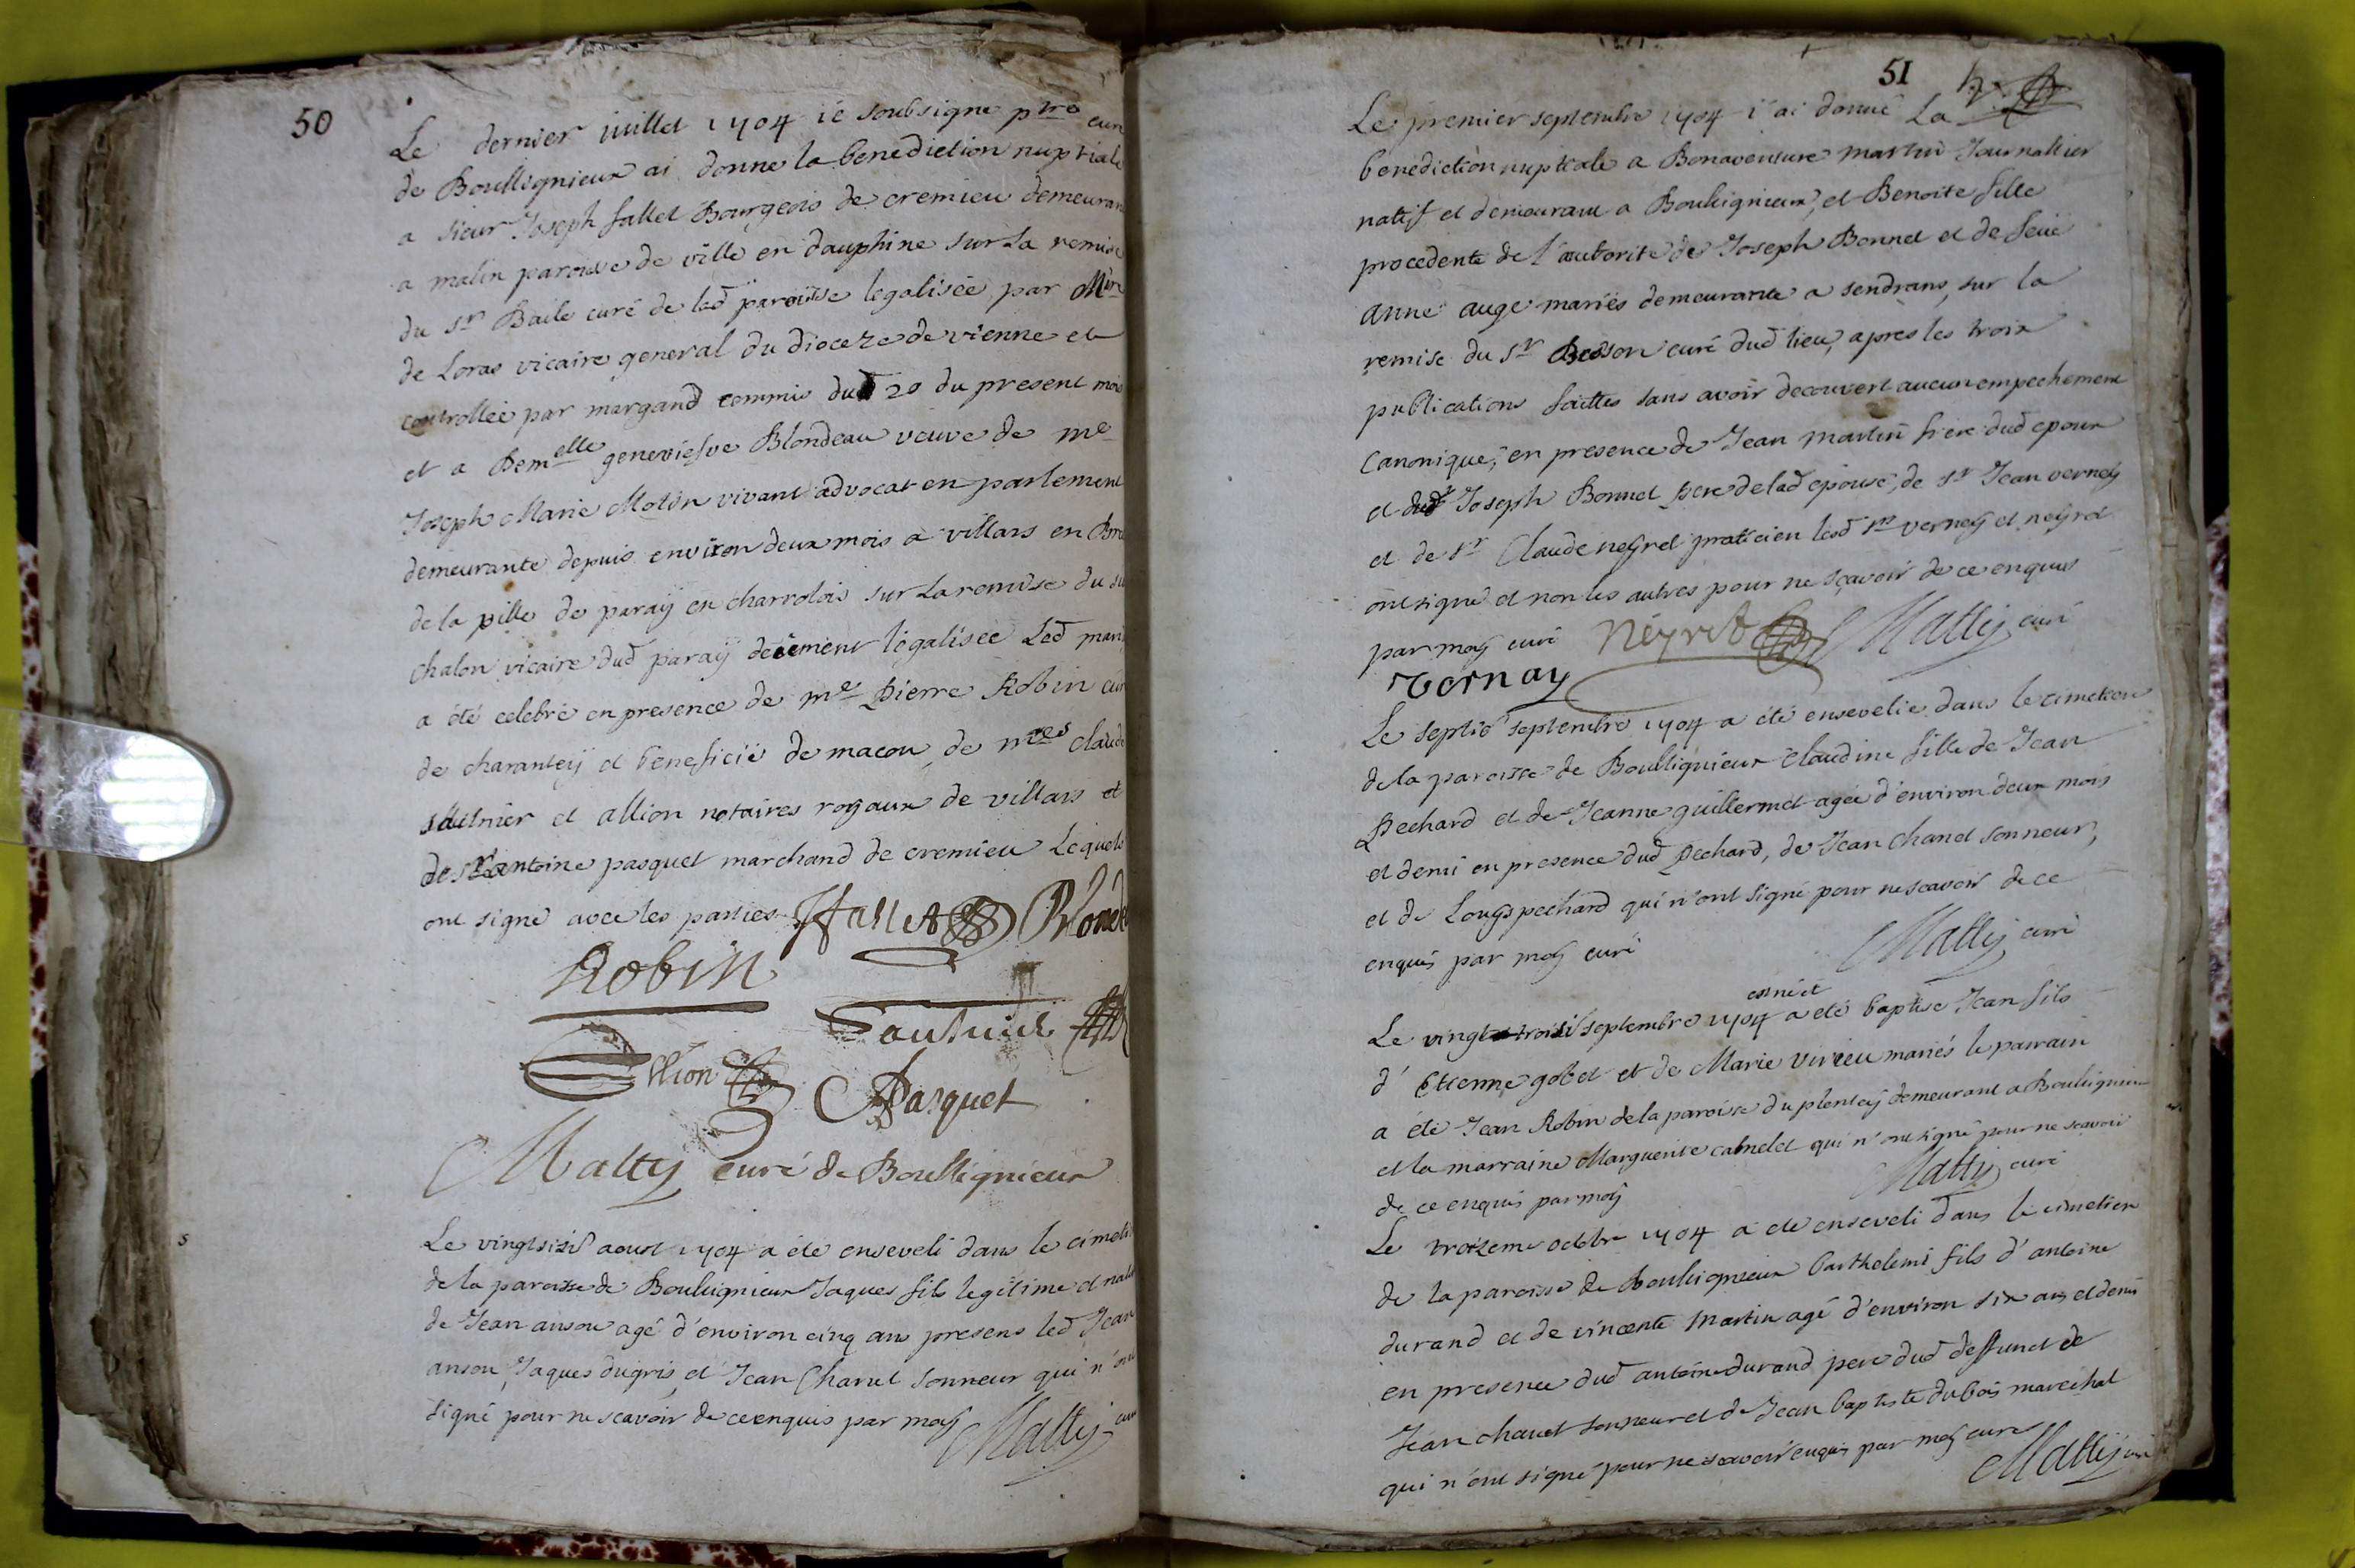 50
Le dernier juillet 1704 ie soubsigné ptre curé
de Boullignieux ai donné la benediction nuptiale
a sieur Joseph fallet Bourgeois de cremieu demeurant
a malin paroisse de ville en dauphiné sur la remise
du sr Baile curé de lad paroisse legalisée par Mire
de Loras vicaire general du dioceze de vienne et
controllée par margand commis dud 20 du present mois
et a Demelle geneviefve Blondeau veuve de me
Joseph Marie Molin vivant advocat en parlement
demeurante depuis environ deux mois a villars en
de la ville de paraÿ en charrolois sur La remise du
chalon vicaire dud paraÿ deüement legalisée Led
a été celebré en presence de me Pierre Robin
de charanteÿ et beneficié de macon, de mres claude
et allion notaires royaux de villars et
de sr antoine pasquet marchand de cremieu Lequels
ont signé avec les parties Fallet
Robin
Allion Pasquet
Matty curé de Boullignieux
Le vingtsixie aoust 1704 a été enseveli dans le
de la paroisse de Boulignieux Jaques fils legitime et
de Jean anson agé d'environ cinq ans presens led Jean
anson, Jaques dugris, et Jean Chanel sonneur qui n'ont
signé pour ne scavoir de ce enquis par moÿ Matty curé
51
Le premier septembre 1704 i'ai donné La
benediction nuptiale a Bonaventure martin Journallier
natif et demeurant a Boulignieux, et Benoite fille
procedente de l'autorité de Joseph Bonnet et de feüe
anne auge mariés demeurante a sendrans, sur la
remise du sr Besson curé dud lieu, apres les trois
publications faittes sans avoir decouvert aucun empechement
Canonique, en presence de Jean martin frere dud epoux
et dud Joseph Bonnet pere de lad epouse, de sr Jean verneÿ
et de sr Claude neÿret praticien lesd srs verneÿ et neÿret
ont signé et non les autres pour ne sçavoir de ce enquis
par moÿ curé Neyret Matty curé
Vernay
Le septie septembre 1704 a été ensevelie dans le cimetiere
de la paroisse de Boullignieux Claudine fille de Jean
Pechard et de Jeanne guillermet agée d'environ deux mois
et demi en presence dud Pechard, de Jean Chanel sonneur,
et de Louÿs pechard qui n'ont signé pour ne scavoir de ce
enquis par moÿ curé Matty curé
est né et
Le vingt septembre 1704 a été baptisé Jean fils
d'Etienne gobet et de Marie vivieu mariés le parrain
a été Jean Robin de la paroisse du planteÿ demeurant a Boulignieux
et la marraine Marguerite qui n'ont signé pour ne scavoir
de ce enquis par moÿ Matty curé
Le troizeme octobre 1704 a été enseveli dans le cimetiere
de la paroisse de Boulignieux barthelemi fils d'antoine
durand et de vincente martin agé d'environ six ans et demi
en presence dud antoine durand pere dud deffunct de
Jean chanel sonneur et de Jean baptiste dubois marechal
qui n'ont signé pour ne scavoir enquis par moÿ curé
Matty curé